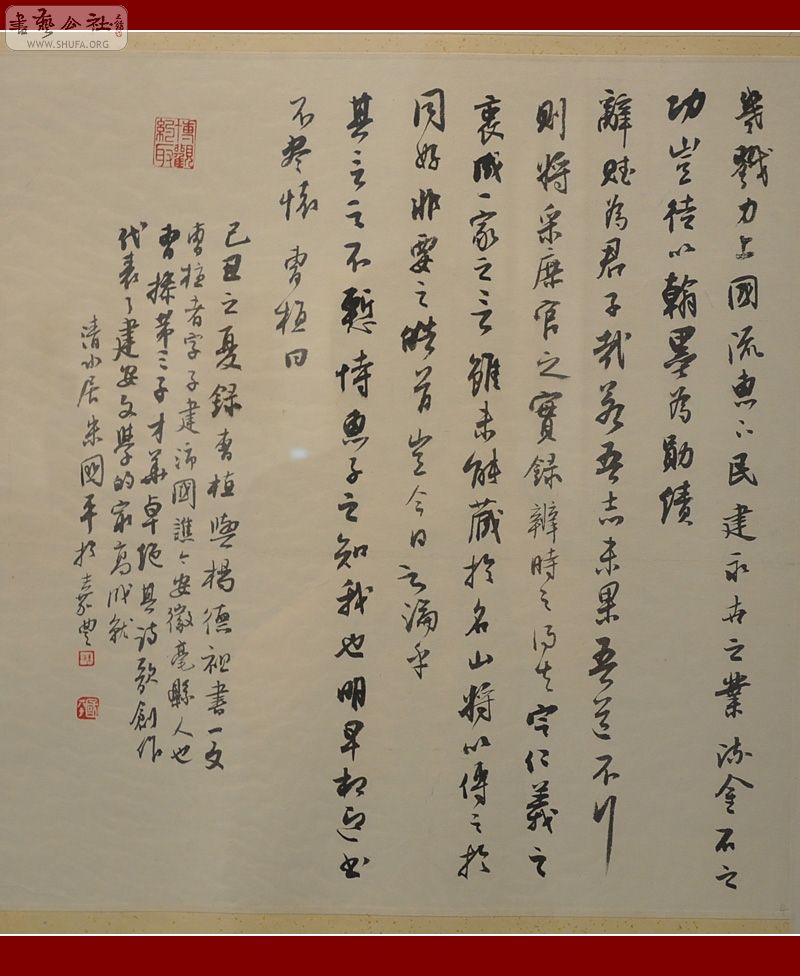 書藝公社
WWW.SHUFA.ORG
幾戮力上國流惠下民建永世之業流金石之
功豈徒以翰墨為勛績
辭賦為君子哉若吾志未果吾道不行
則將采庶官之實錄辯時之得失定仁義之
衷成一家之言雖未能藏於名山將以傳之於
同好非要之皓首豈今日之論乎
其言之不慙恃惠子之知我也明早相迎書
不盡懷 曹植曰
博觀約取
己丑之夏錄曹植與楊德祖書一文
曹植者字子建沛國譙今安徽亳縣人也
曹操第三子才華卓絕其詩歌創作
代表了建安文學的最高成就
清水居朱國平於嘉豐